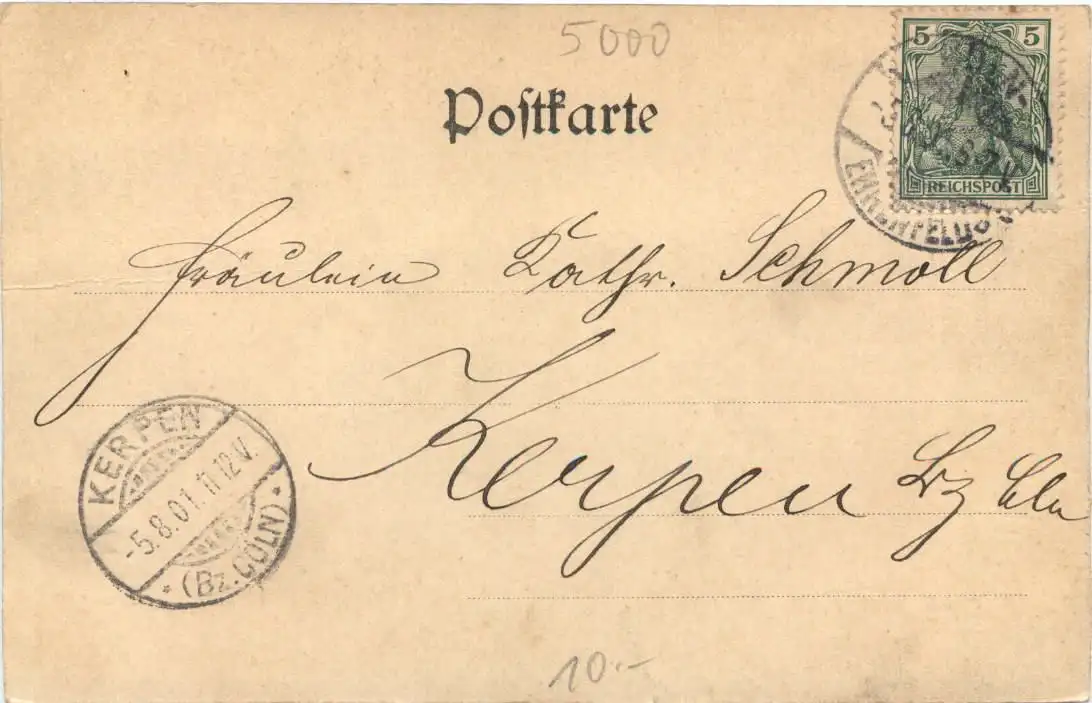 5000
Postkarte
5 5
REICHSPOST
Fräulein Kathr. Schmoll
Kerpen Bz Cln
KERPEN
-5.8.01.11-12V.
* (Bz. CÖLN) *
10.-